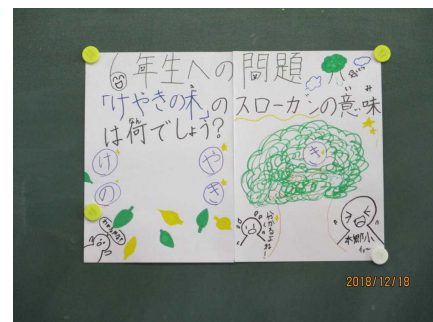 6年生への問題
「けやきの木」の スローガンの意味
は何でしょう?
け や
の き
き
分かるよね!
本郷小
2018/12/18